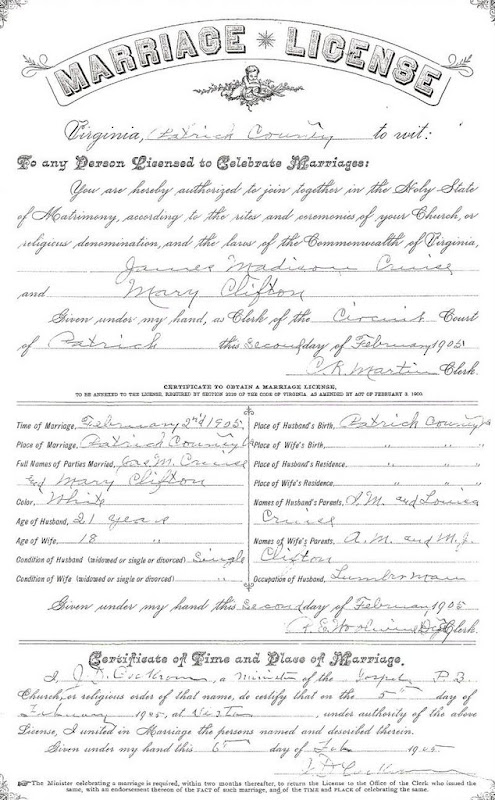 MARRIAGE LICENSE
Virginia, Patrick County to wit:
To any Person Licensed to Celebrate Marriages:
You are hereby authorized to join together in the Holy State
of Matrimony, according to the rites and ceremonies of your Church, or
religious denomination, and the laws of the Commonwealth of Virginia,
James Madison Cruise
and Mary Clifton
Given under my hand, as Clerk of the Circuit Court
of Patrick this second day of February 1905
C.R. Martin Clerk.
CERTIFICATE TO OBTAIN A MARRIAGE LICENSE,
TO BE ANNEXED TO THE LICENSE, REQUIRED BY SECTION 2229 OF THE CODE OF VIRGINIA AS AMENDED BY ACT OF FEBRUARY 3, 1900.
Time of Marriage, February 2nd 1905.
Place of Marriage, Patrick County
Full Names of Parties Married, Jas. M. Cruise
and Mary Clifton
Color, White
Age of Husband, 21 years
Age of Wife, 18 "
Condition of Husband (widowed or single or divorced) Single
Condition of Wife (widowed or single or divorced) "
Place of Husband's Birth, Patrick County
Place of Wife's Birth, " "
Place of Husband's Residence, " "
Place of Wife's Residence, " "
Names of Husband's Parents, and Louisa
Cruise
Names of Wife's Parents, A. M. and M. J.
Clifton
Occupation of Husband, Lumberman
Given under my hand this second day of February 1905
Clerk.
Certificate of Time and Place of Marriage.
I, J. D. Cockram, a Minister of the Gospel P. B.
Church, or religious order of that name, do certify that on the 5th day of
February 1905, at Vesta, under authority of the above
License, I united in Marriage the persons named and described therein.
Given under my hand this 6th day of Feb. 1905
J. D. Cockram
☞The Minister celebrating a marriage is required, within two months thereafter, to return the License to the Office of the Clerk who issued the
same, with an endorsement thereon of the FACT of such marriage, and of the TIME and PLACE of celebrating the same.